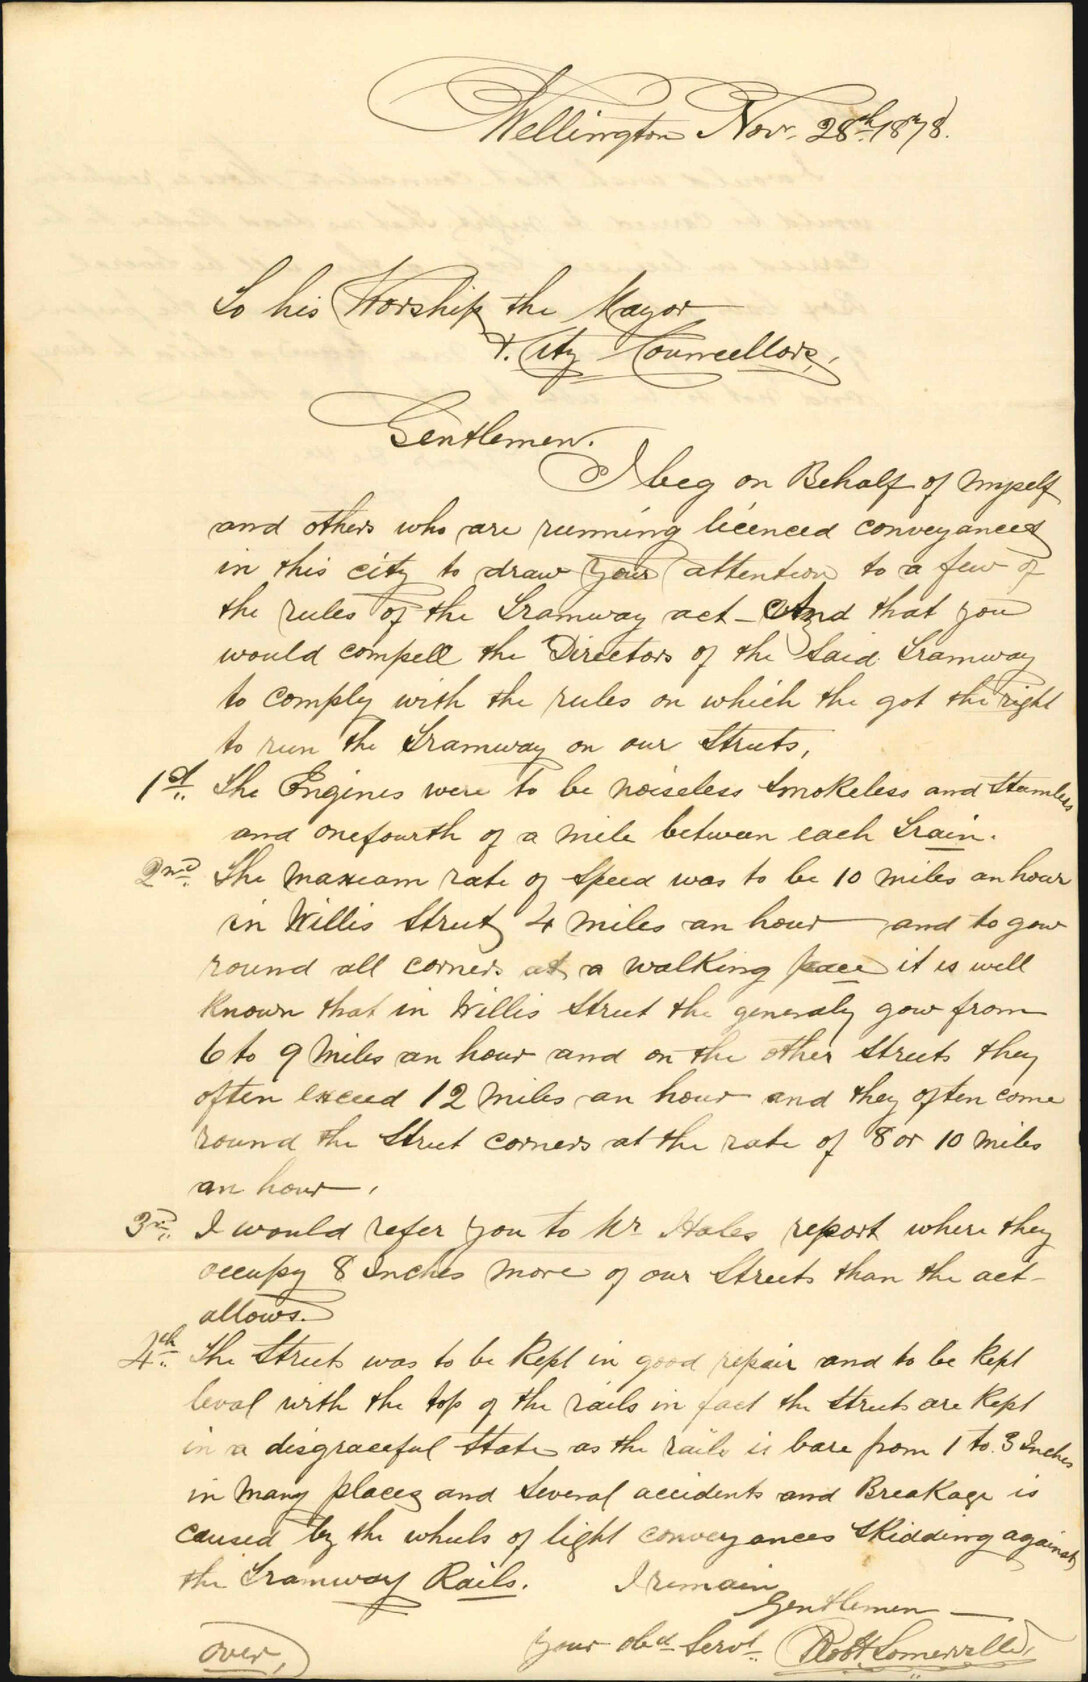 Wellington Nov. 28th 1878.
To his Worship the Mayor
& City Councellors,
Gentlemen.
I beg on Behalf of myself
and others who are running licenced conveyances
in this city to draw your attention to a few of
the rules of the Tramway act - And that you
would compell the Directors of the Said Tramway
to comply with the rules on which the got the right
to run the Tramway on our Streets,
1st. The Engines were to be noiseless Smokeless and Steamless
and onefourth of a mile between each Train.
2nd. The maxeam rate of Speed was to be 10 miles an hour
in Willis Street 4 miles an hour and to gow
round all corners at a walking pace it is well
Known that in Willis Street the generaly gow from
6 to 9 Miles an hour and on the other Streets they
often exceed 12 Miles an hour and they often come
round the Street corners at the rate of 8 or 10 miles
an hour.
3rd. I would refer you to Mr Hales report where they
occupy 8 Inches more of our Streets than the act
allows.
4th. The Streets was to be Kept in good repair and to be Kept
leval with the top of the rails in fact the Streets are Kept
in a disgraceful State as the rails is bare from 1 to 3 Inches
in Many places and Several accidents and Breakage is
caused by the wheels of light conveyances Skidding against
the Tramway Rails. I remain
Gentlemen
Your obed Servt. Robt Somerville,
over,